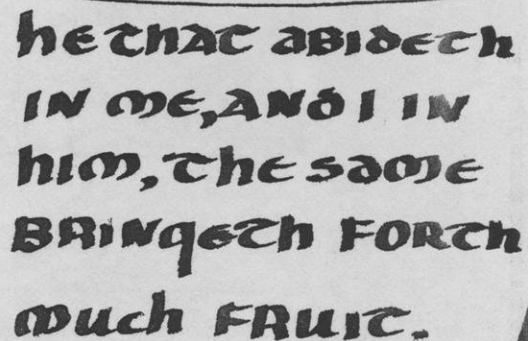 he that abideth
in me, and I in
him, the same
bringeth forth
much fruit.